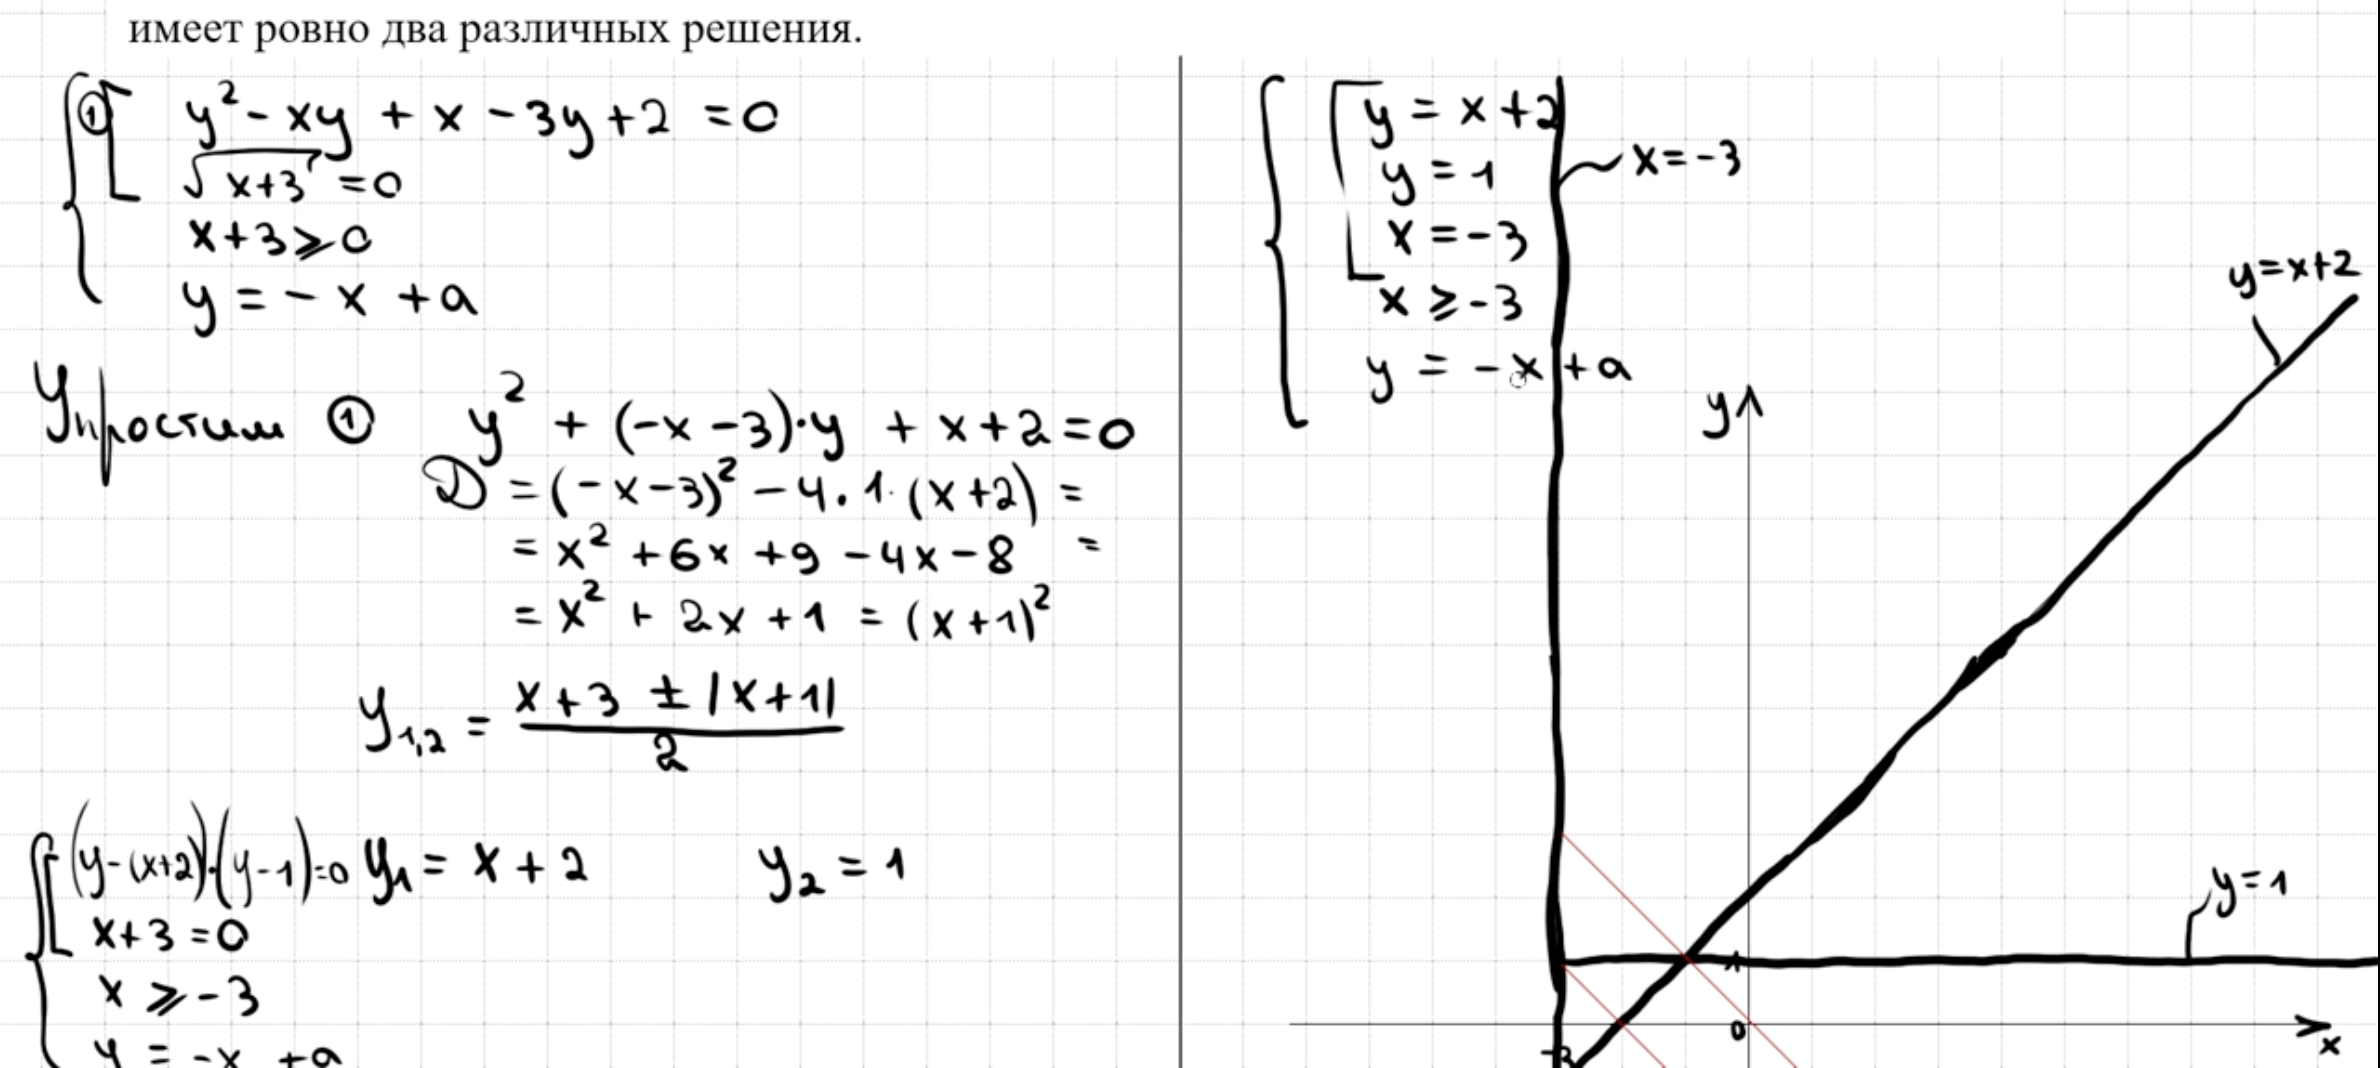 имеет ровно два различных решения.
① y² - xy + x - 3y + 2 = 0
√x+3 = 0
x+3 ⩾ 0
y = - x + a
Упростим ① y² + (-x -3)·y + x+2 = 0
D = (-x-3)² - 4·1·(x+2) =
= x² + 6x + 9 - 4x - 8 =
= x² + 2x + 1 = (x+1)²
y₁,₂ = x+3 ± |x+1|
2
(y-(x+2))·(y-1)=0 y₁ = x + 2 y₂ = 1
x+3 = 0
x ⩾ -3
y = -x + a
y = x +2
y = 1
x = -3
x ⩾ -3
y = -x + a
x = -3
y=x+2
y
y=1
1
0
-3
x